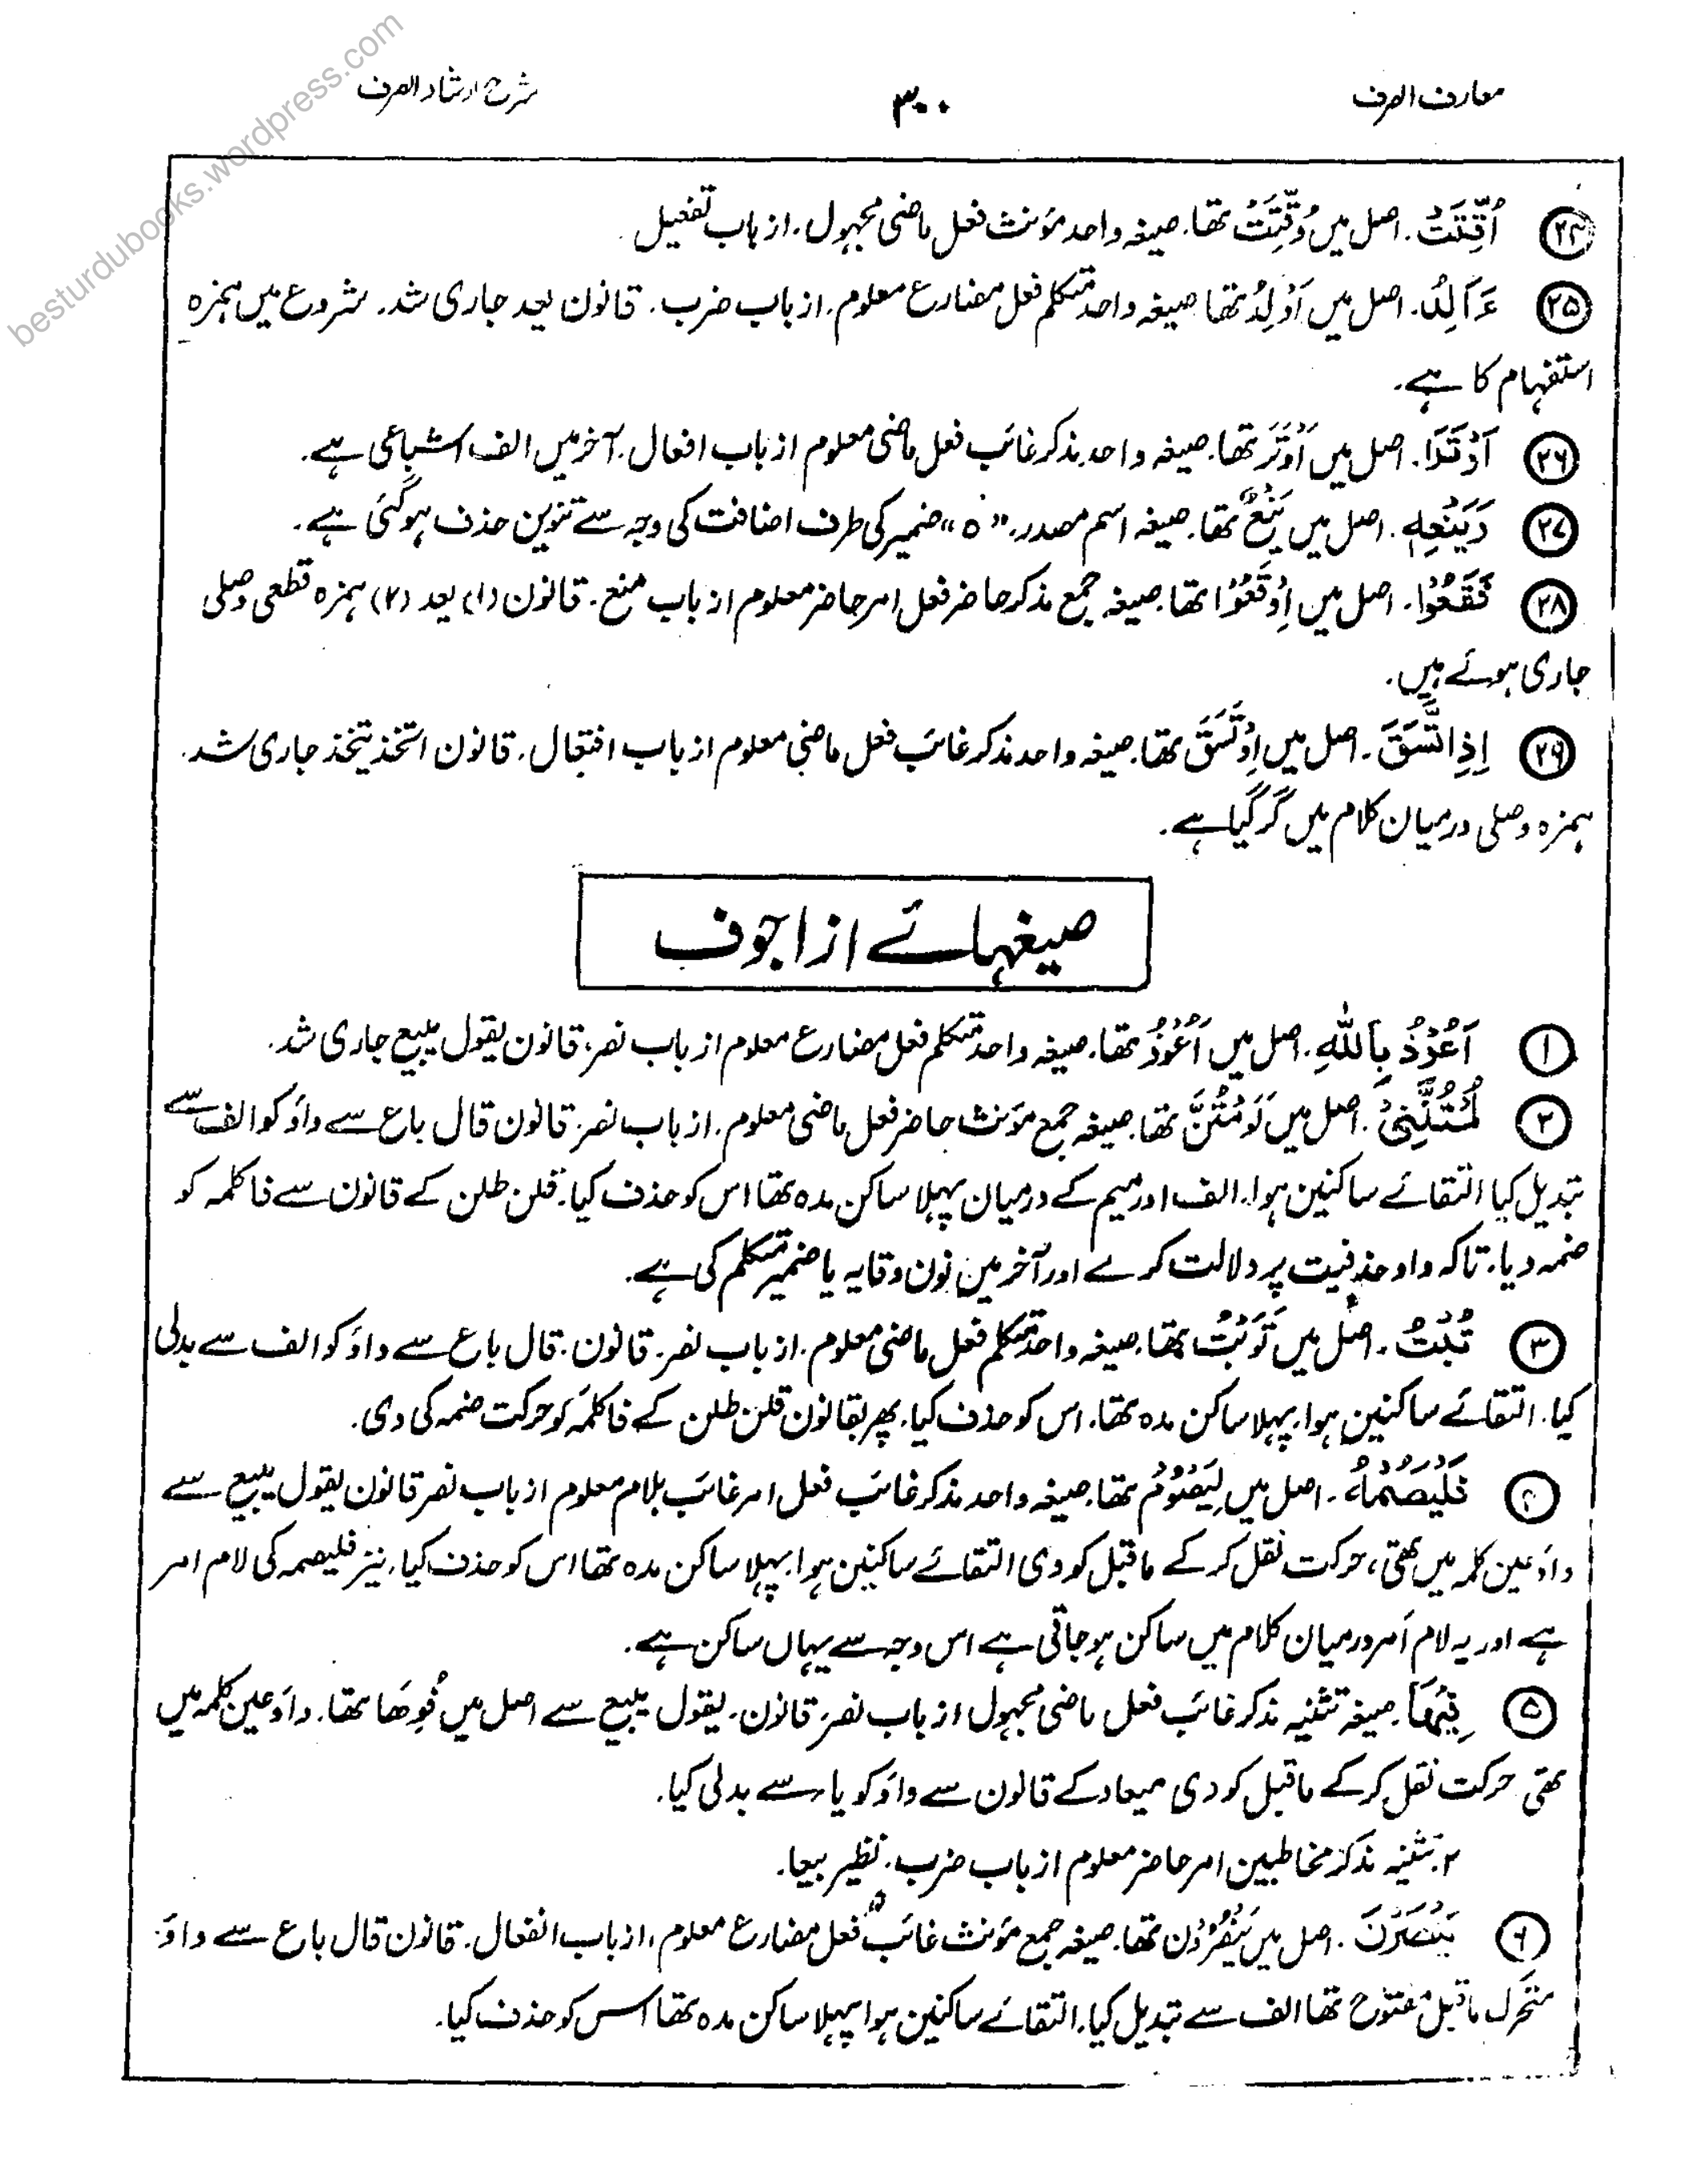 معارف الصرف
۳۰۰
شرح ارشاد الصرف
besturdubooks.wordpress.com
۲۴ اُقِّتَتْ. اصل میں وُقِّتَتْ تھا. صیغہ واحد مؤنث فعل ماضی مجہول. از باب تفعیل
۲۵ ءَاَلِدُ. اصل میں اَوْلِدُ تھا صیغہ واحد متکلم فعل مضارع معلوم. از باب ضرب. قانون یعد جاری شد. شروع میں ہمزہ
استفہام کا ہے.
۲۶ اصل میں اَوْتَرَ تھا. صیغہ واحد مذکر غائب فعل ماضی معلوم از باب افعال. آخر میں الف اشباعی ہے.
۲۷ وَيَنْعِهٖ. اصل میں يَنْعٌ تھا. صیغہ اسم مصدر. "ہ" ضمیر کی طرف اضافت کی وجہ سے تنوین حذف ہوگئی ہے.
۲۸ فَقَعُوْا. اصل میں اِوْقَعُوْا تھا. صیغہ جمع مذکر حاضر فعل امر حاضر معلوم از باب منع. قانون (۱) یعد (۲) ہمزہ قطعی وصلی
جاری ہوئے ہیں.
۲۹ اِذِا تَّسَقَ. اصل میں اِوْتَسَقَ تھا. صیغہ واحد مذکر غائب فعل ماضی معلوم از باب افتعال. قانون اتخذ یتخذ جاری شد.
ہمزہ وصلی درمیان کلام میں گر گیا ہے.
صیغہائے از اجوف
۱ اَعُوْذُ بِاللّٰهِ. اصل میں اَعْوُذُ تھا. صیغہ واحد متکلم فعل مضارع معلوم از باب نصر. قانون یقول یبیع جاری شد.
۲ لُمْتُنَّنِیْ. اصل میں لَوَمْتُنَّ تھا. صیغہ جمع مؤنث حاضر فعل ماضی معلوم. از باب نصر. قانون قال باع سے واؤ کو الف سے
تبدیل کیا التقائے ساکنین ہوا. الف اور میم کے درمیان پہلا ساکن مدہ تھا اس کو حذف کیا. قلن طلن کے قانون سے فا کلمہ کو
ضمہ دیا. تاکہ واو حذفیت پر دلالت کرے اور آخر میں نون وقایہ یا ضمیر متکلم کی ہے.
۳ تُبْتُ. اصل میں تَوَبْتُ تھا. صیغہ واحد متکلم فعل ماضی معلوم. از باب نصر. قانون. قال باع سے واؤ کو الف سے بدلی
کیا. التقائے ساکنین ہوا. پہلا ساکن مدہ تھا. اس کو حذف کیا. پھر بقانون قلن طلن کے فا کلمہ کو حرکت ضمہ کی دی.
۴ فَلْيَصُمْهُ. اصل میں لِيَصْوُمْ تھا. صیغہ واحد مذکر غائب فعل امر غائب بلام معلوم از باب نصر قانون یقول یبیع سے
واؤ عین کلمہ میں تھی، حرکت نقل کر کے ماقبل کو دی التقائے ساکنین ہوا. پہلا ساکن مدہ تھا اس کو حذف کیا. نیز فلیصمہ کی لام امر
ہے اور یہ لام امر درمیان کلام میں ساکن ہو جاتی ہے اس وجہ سے یہاں ساکن ہے.
۵ فِيْهَا. صیغہ تثنیہ مذکر غائب فعل ماضی مجہول از باب نصر. قانون. یقول یبیع سے اصل میں فُوِهَا تھا. واؤ عین کلمہ میں
تھی حرکت نقل کر کے ماقبل کو دی میعاد کے قانون سے واؤ کو یاء سے بدلی کیا.
۲. تثنیہ مذکر مخاطبین امر حاضر معلوم از باب ضرب. نظیر بیعا.
۶ اصل میں تھا. صیغہ جمع مؤنث غائب فعل مضارع معلوم، از باب انفعال. قانون قال باع سے واؤ
متحرک ماقبل مفتوح تھا الف سے تبدیل کیا. التقائے ساکنین ہوا پہلا ساکن مدہ تھا اس کو حذف کیا.